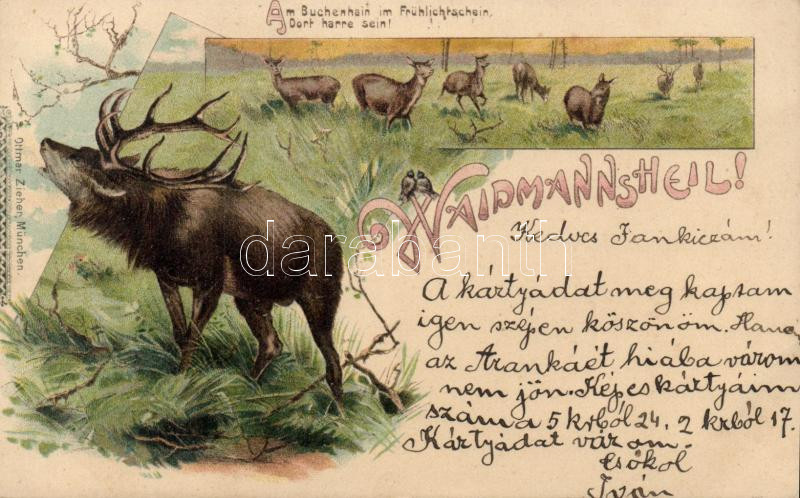 Am Buchenhain im Frühlichtschein,
Dort harre sein!
WAIDMANNSHEIL!
Ottmar Zieher, München.
darabanth
Kedves Fankiczám!
A kártyádat meg kaptam
igen szépen köszönöm.
az Arankáét hiába várom
nem jön. Képes kártyáim
száma 5 krból 24, 2 krból 17.
Kártyádat várom.
Csókol
Iván